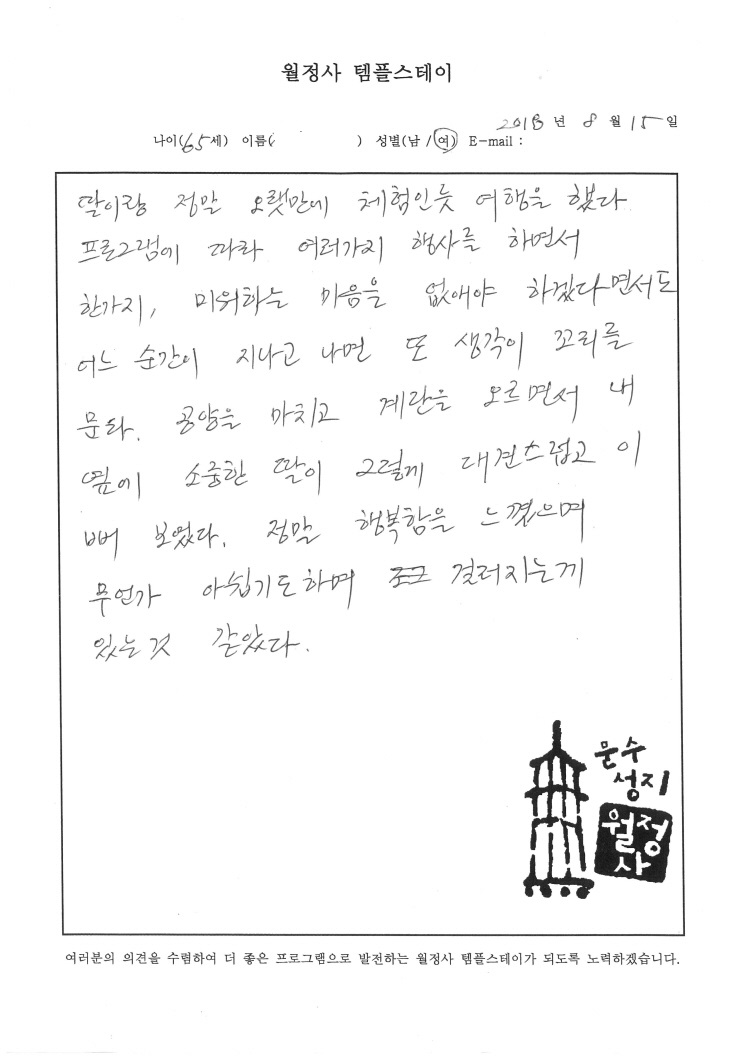 월정사 템플스테이
2018 년 8 월 15 일
나이(65세) 이름( ) 성별(남 / 여) E-mail :
딸이랑 정말 오랫만에 체험인듯 여행을 했다
프로그램에 따라 여러가지 행사를 하면서
한가지, 미워하는 마음을 없애야 하겠다면서도
어느 순간이 지나고 나면 또 생각이 꼬리를
문다. 공양을 마치고 계란을 오르면서 내
옆에 소중한 딸이 그렇게 대견스럽고 이
뻐 보였다. 정말 행복함을 느꼈으며
무언가 아쉽기도하며 걸러지는게
있는것 같았다.
문수
성지
월정
사
여러분의 의견을 수렴하여 더 좋은 프로그램으로 발전하는 월정사 템플스테이가 되도록 노력하겠습니다.